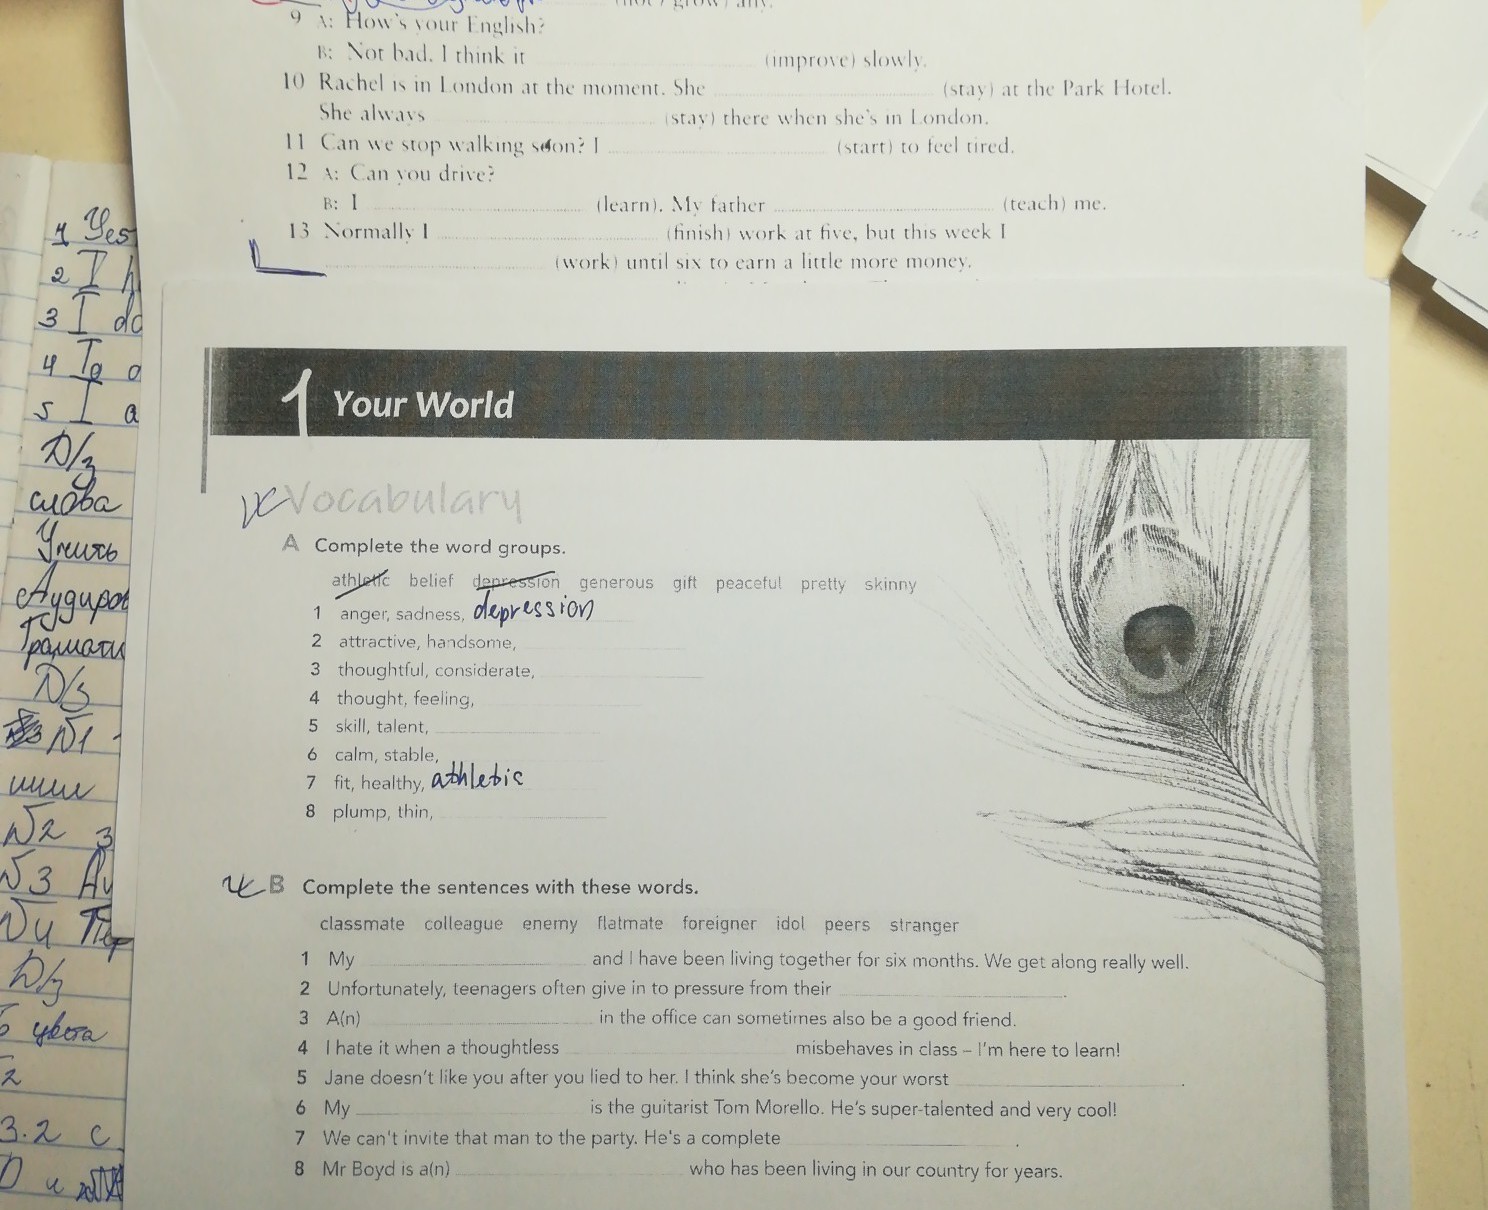 grow) any.
9 A: How's your English?
B: Not bad. I think it (improve) slowly.
10 Rachel is in London at the moment. She (stay) at the Park Hotel.
She always (stay) there when she's in London.
11 Can we stop walking soon? I (start) to feel tired.
12 A: Can you drive?
B: I (learn). My father (teach) me.
13 Normally I (finish) work at five, but this week I
(work) until six to earn a little more money.
1 Your World
Vocabulary
A Complete the word groups.
athletic belief depression generous gift peaceful pretty skinny
1 anger, sadness, depression
2 attractive, handsome,
3 thoughtful, considerate,
4 thought, feeling,
5 skill, talent,
6 calm, stable,
7 fit, healthy, athletic
8 plump, thin,
B Complete the sentences with these words.
classmate colleague enemy flatmate foreigner idol peers stranger
1 My and I have been living together for six months. We get along really well.
2 Unfortunately, teenagers often give in to pressure from their .
3 A(n) in the office can sometimes also be a good friend.
4 I hate it when a thoughtless misbehaves in class – I'm here to learn!
5 Jane doesn't like you after you lied to her. I think she's become your worst .
6 My is the guitarist Tom Morello. He's super-talented and very cool!
7 We can't invite that man to the party. He's a complete .
8 Mr Boyd is a(n) who has been living in our country for years.
1 Yes
2 I
3 I do
4
5 I a
Д/з
слова
Учить
Аудиров
Граммати
Д/з
№1
№2 3
№3 Ау
№4 Пер
Д/з
цвета
2
3.2 с